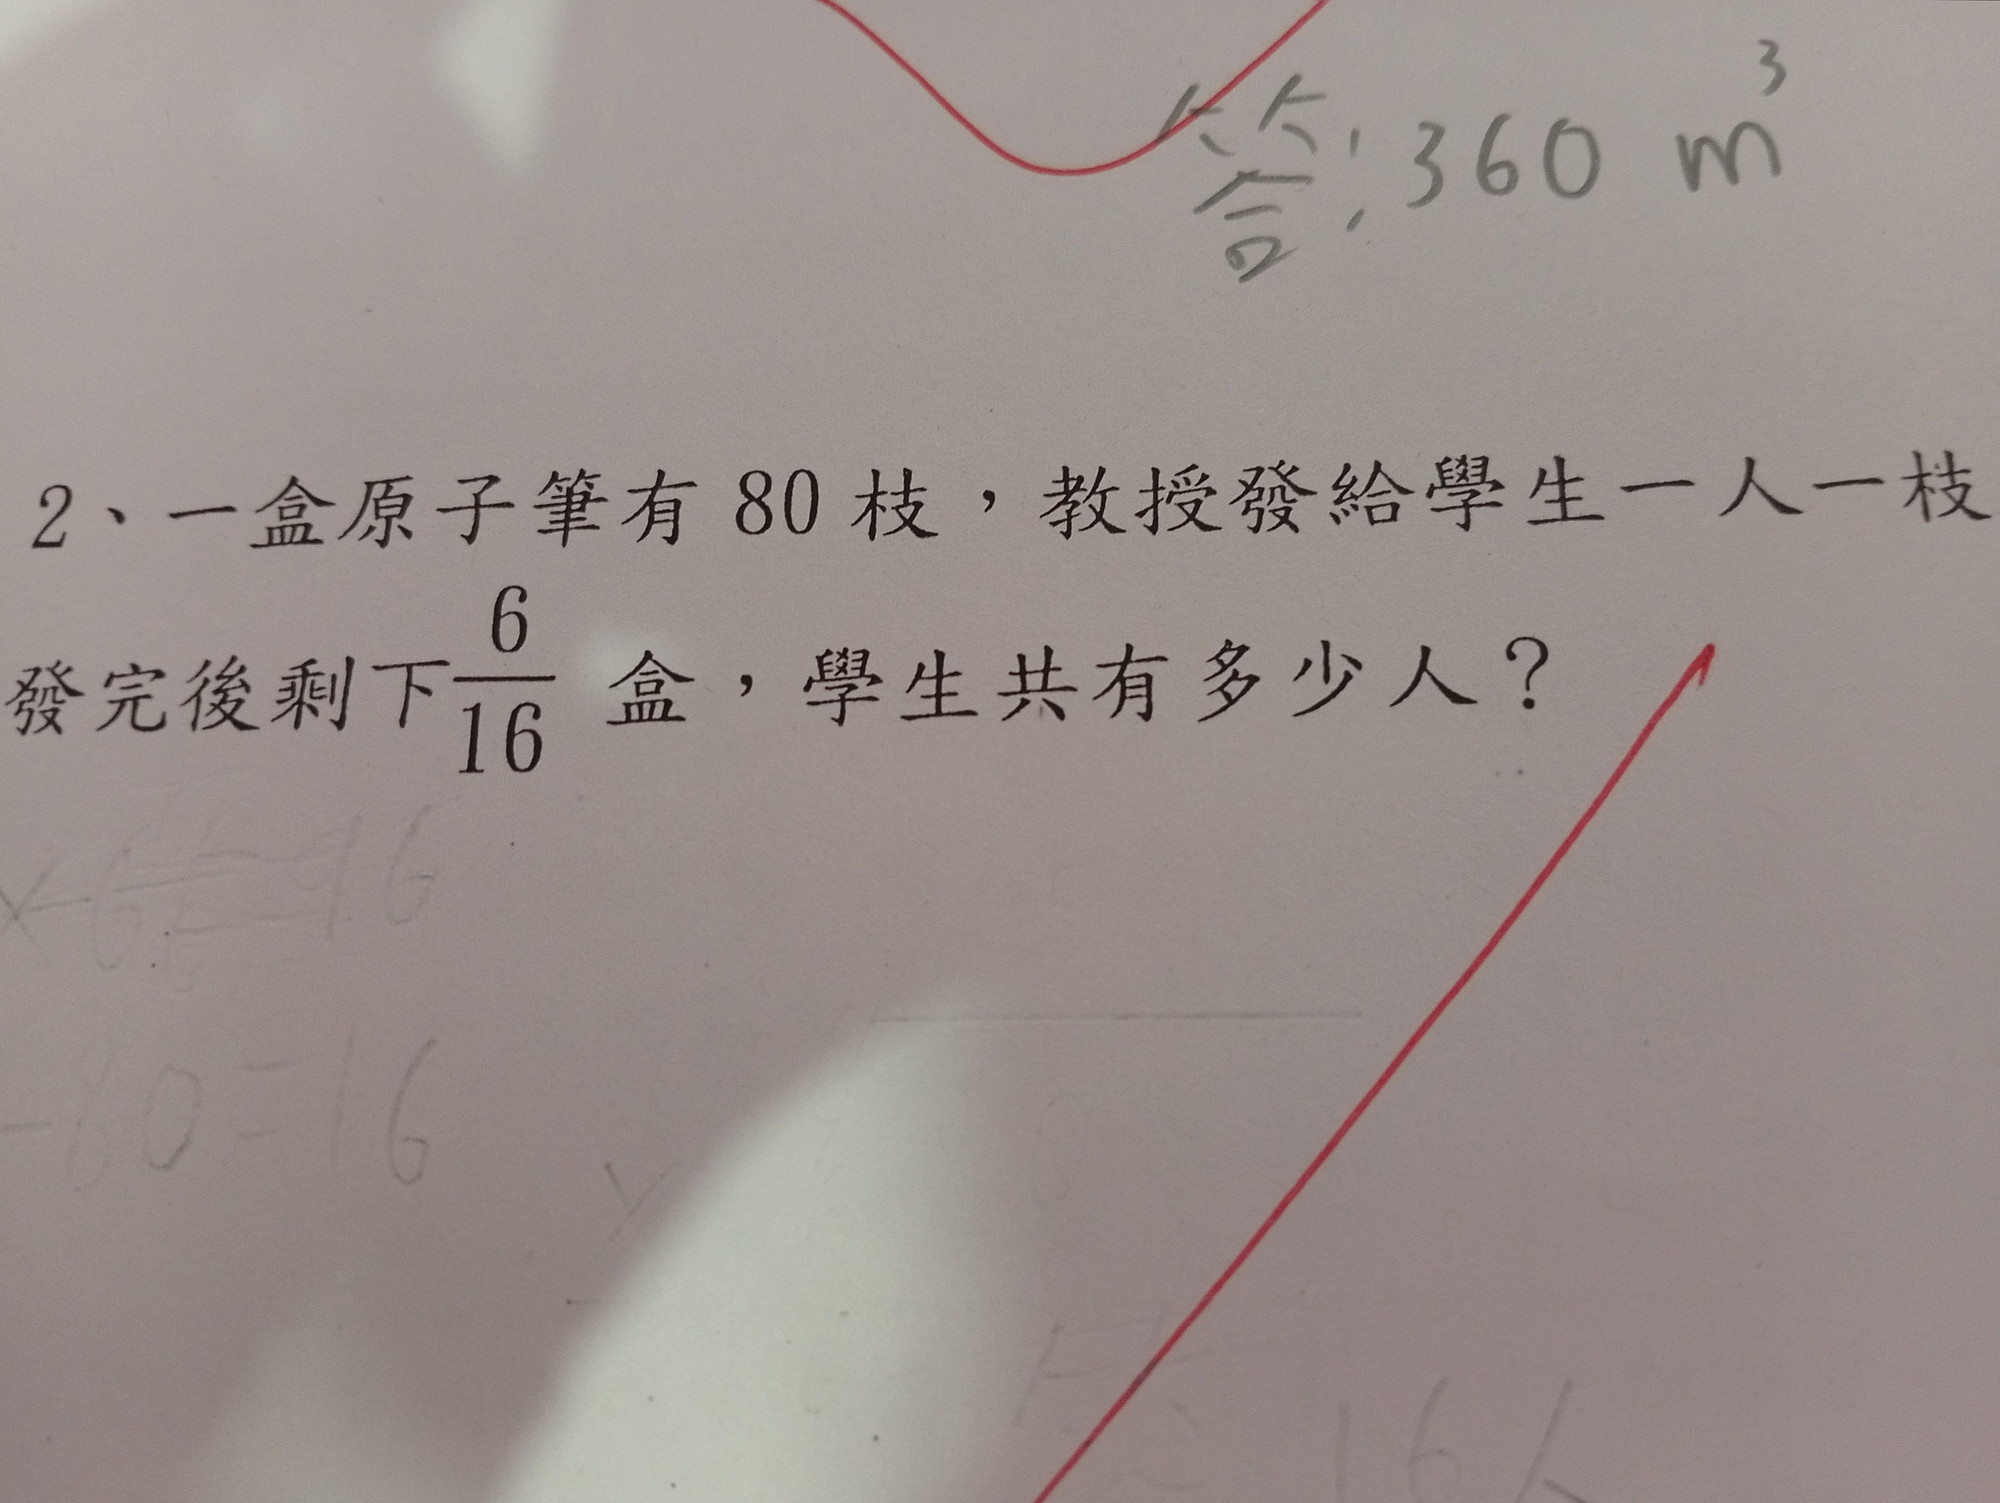 答:360 m³
2、一盒原子筆有 80 枝，教授發給學生一人一枝
發完後剩下 6/16 盒，學生共有多少人？
-80=16
16人